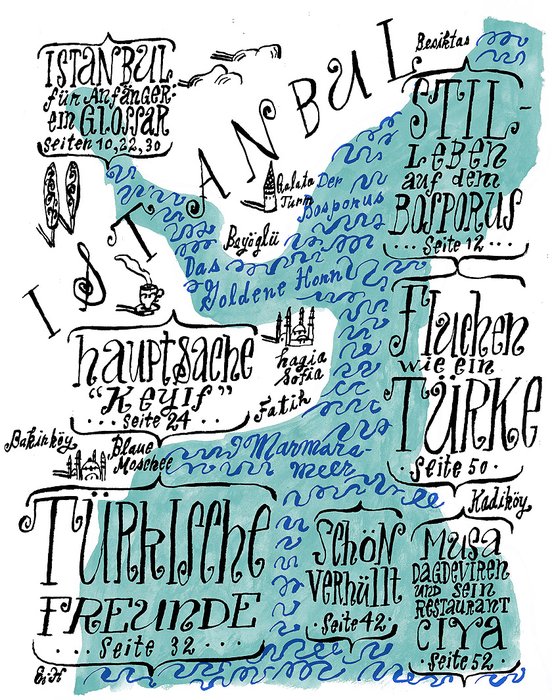 Besiktas
ISTANBUL
für Anfänger:
ein GLOSSAR
Seiten 10, 22, 30
ISTANBUL
STIL-
LEBEN
auf dem
BOSPORUS
Seite 12
Galata
Turm
Der
Bosporus
Beyöğlü
Das
Goldene Horn
Fluchen
wie ein
TÜRKE
Seite 50
hauptsache
"Keyif"
Seite 24
hagia
Sofia
Fatih
Bakirköy
Blaue
Moschee
Marmara-
meer
Kadiköy
TÜRKISCHE
FREUNDE
Seite 32
SCHÖN
VERHÜLLT
Seite 42
MUSA
DAGDEVIREN
und sein
RESTAURANT
CIYA
Seite 52